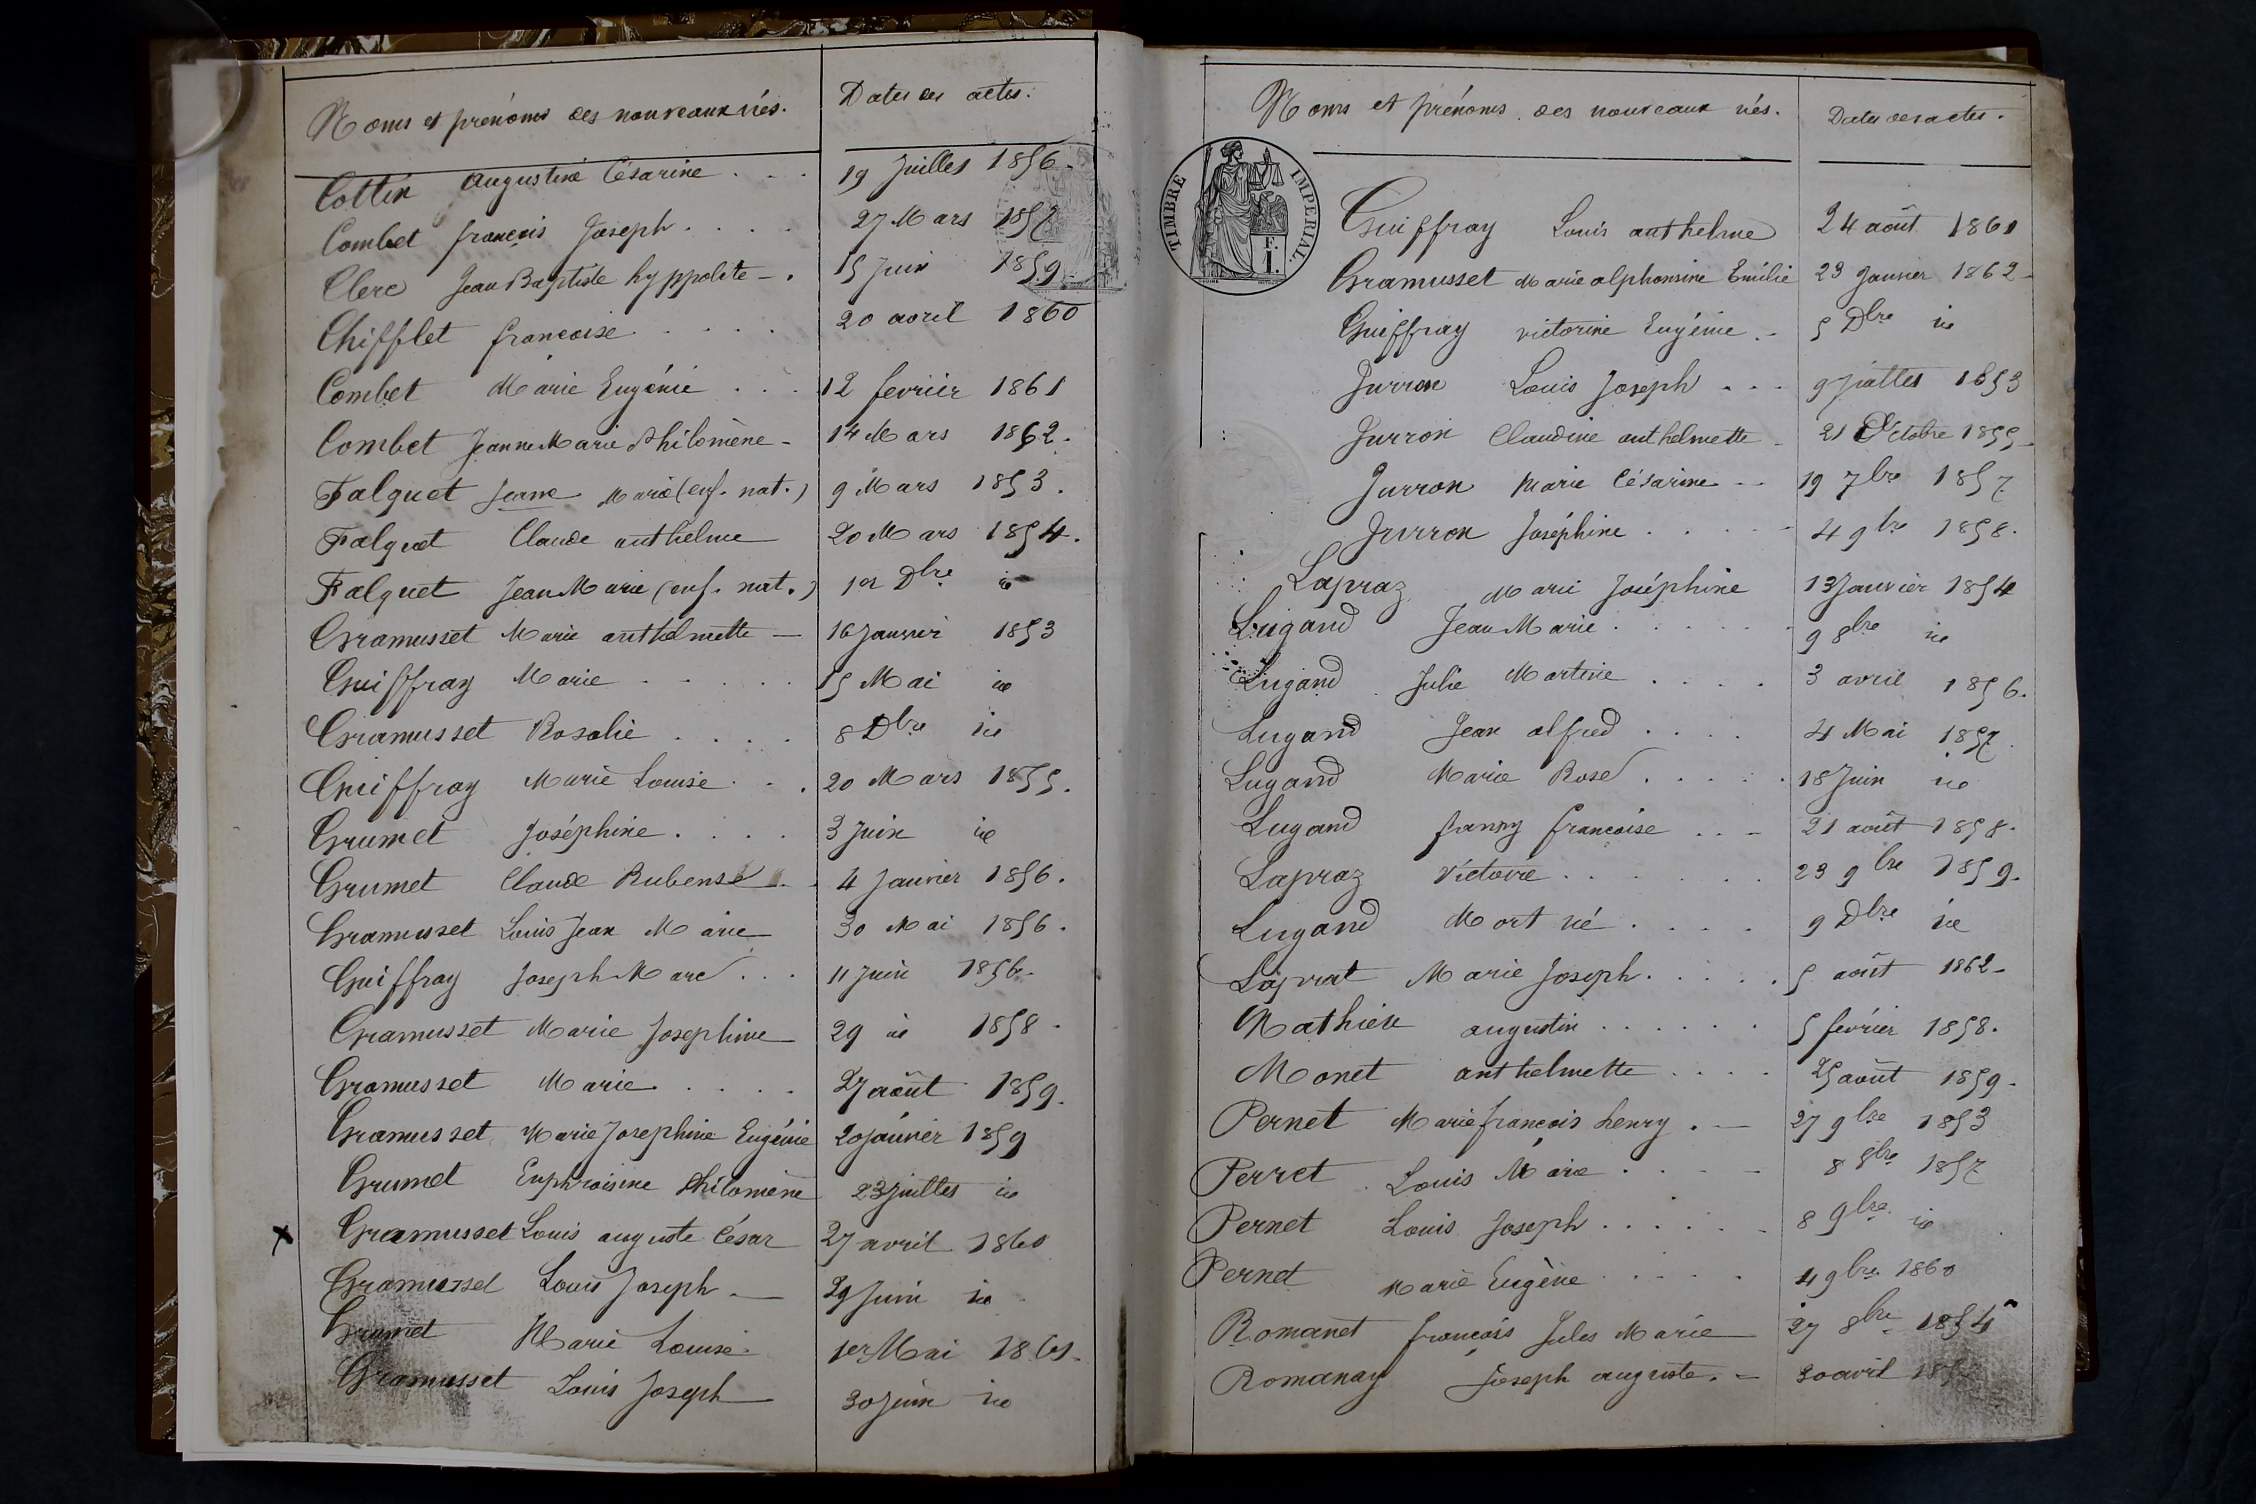 Noms et prénoms des nouveaux nés. Dates des actes.
Cottin augustine Césarine . . . 19 Juillet 1856.
Combet françois Joseph . . . . 27 Mars 1857
Clerc Jean Baptiste hyppolite - . 15 Juin 1859.
Chifflet françoise . . . . . 20 avril 1860
Combet Marie Eugénie . . . 12 fevrier 1861
Combet Jeanne Marie Philomène - 14 Mars 1862.
Falquet Jeanne Marie (enf. nat.) 9 Mars 1853.
Falquet Claude anthelme 20 Mars 1854.
Falquet Jean Marie (enf. nat.) 1er Dbre id
Gramusset Marie anthelmette — 16 Janvier 1853
Guiffray Marie . . . . . 15 Mai id
Gramusset Rosalie . . . . 8 Dbre id
Guiffray Marie Louise . . . 20 Mars 1855.
Grumet Joséphine . . . . 3 Juin id
Grumet Claude Rubense . . 4 Janvier 1856.
Gramusset Louis Jean Marie 30 Mai 1856.
Guiffray Joseph Marc . . . 11 Juin 1856.
Gramusset Marie Josephine 29 id 1858.
Gramusset Marie . . . . 27 août 1859.
Gramusset Marie Josephine Eugénie 20 janvier 1859
Grumet Euphroisine Philomène 23 Juillet id
x Gramusset Louis auguste César 27 avril 1860
Gramusset Louis Joseph . — 29 Juin id
Grumet Marie Louise. 1er Mai 1861.
Gramusset Louis Joseph — 30 Juin id
Noms et prénoms des nouveaux nés. Dates des actes.
TIMBRE IMPERIAL.
F.
I.
Guiffray Louis anthelme 24 août 1861
Gramusset Marie alphonsine Emilie 23 Janvier 1862
Guiffray victorine Eugénie . - 5 Dbre id
Jurron Louis Joseph . . . 9 Juillet 1853
Jurron Claudine anthelmette - 21 Octobre 1855
Jurron Marie Césarine - - 19 7bre 1857
Jurron Joséphine . . . . . 4 9bre 1858.
Lapraz Marie Joséphine 13 Janvier 1854
Lugand Jean Marie . . . . . . 9 8bre id
Lugand Julie Martine . . . . 3 avril 1856.
Lugand Jean alfred . . . . 4 Mai 1857.
Lugand Marie Rose . . . . . 18 Juin id
Lugand fanny françoise . . - 21 août 1858.
Lapraz Victoire . . . . . . 23 9bre 1859.
Lugand Mort né . . . . 9 Dbre id
Laprat Marie Joseph . . . . . 5 août 1862
Mathieu augustin . . . . . . 5 fevrier 1858.
Monet anthelmette . . . . 25 août 1859.
Pernet Marie françois henry . — 27 9bre 1853
Perret Louis Marie . . . - 8 8bre 1857
Pernet Louis Joseph . . . . . . 8 9bre id
Pernet Marie Eugène . . . . . 4 9bre 1860
Romanet françois Jules Marie 27 8bre 1854
Romanay Joseph auguste. - 30 avril